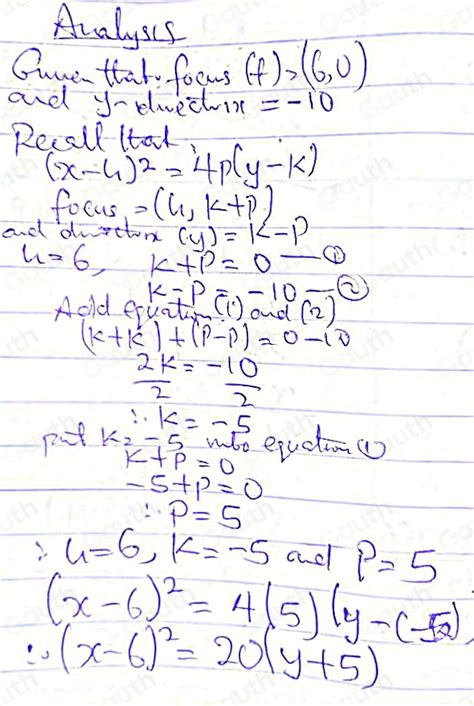 Analysis
Given that focus (f) = (6,0)
and y-directrix = -10
Recall that,
(x-h)² = 4p(y-k)
focus = (h, k+p)
and directrix (y) = k-p
h=6, k+p = 0 — ①
k-p = -10 — ②
Add equation (1) and (2)
(k+k) + (p-p) = 0-10
2k = -10
2 2
∴ k = -5
put k = -5 into equation ①
k+p = 0
-5+p = 0
∴ p = 5
∴ h=6, k=-5 and p=5
(x-6)² = 4(5)(y-(-5))
∴ (x-6)² = 20(y+5)